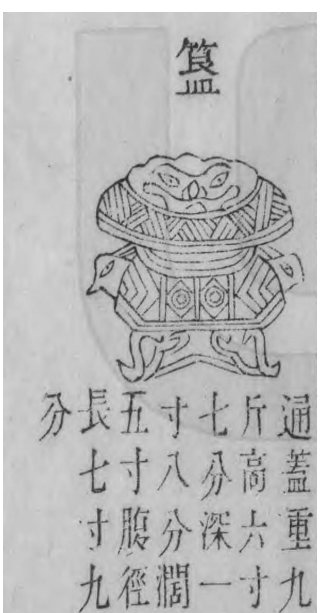 簋
通蓋重九
斤高六寸
七分深一
寸八分濶
五寸腹徑
長七寸九
分